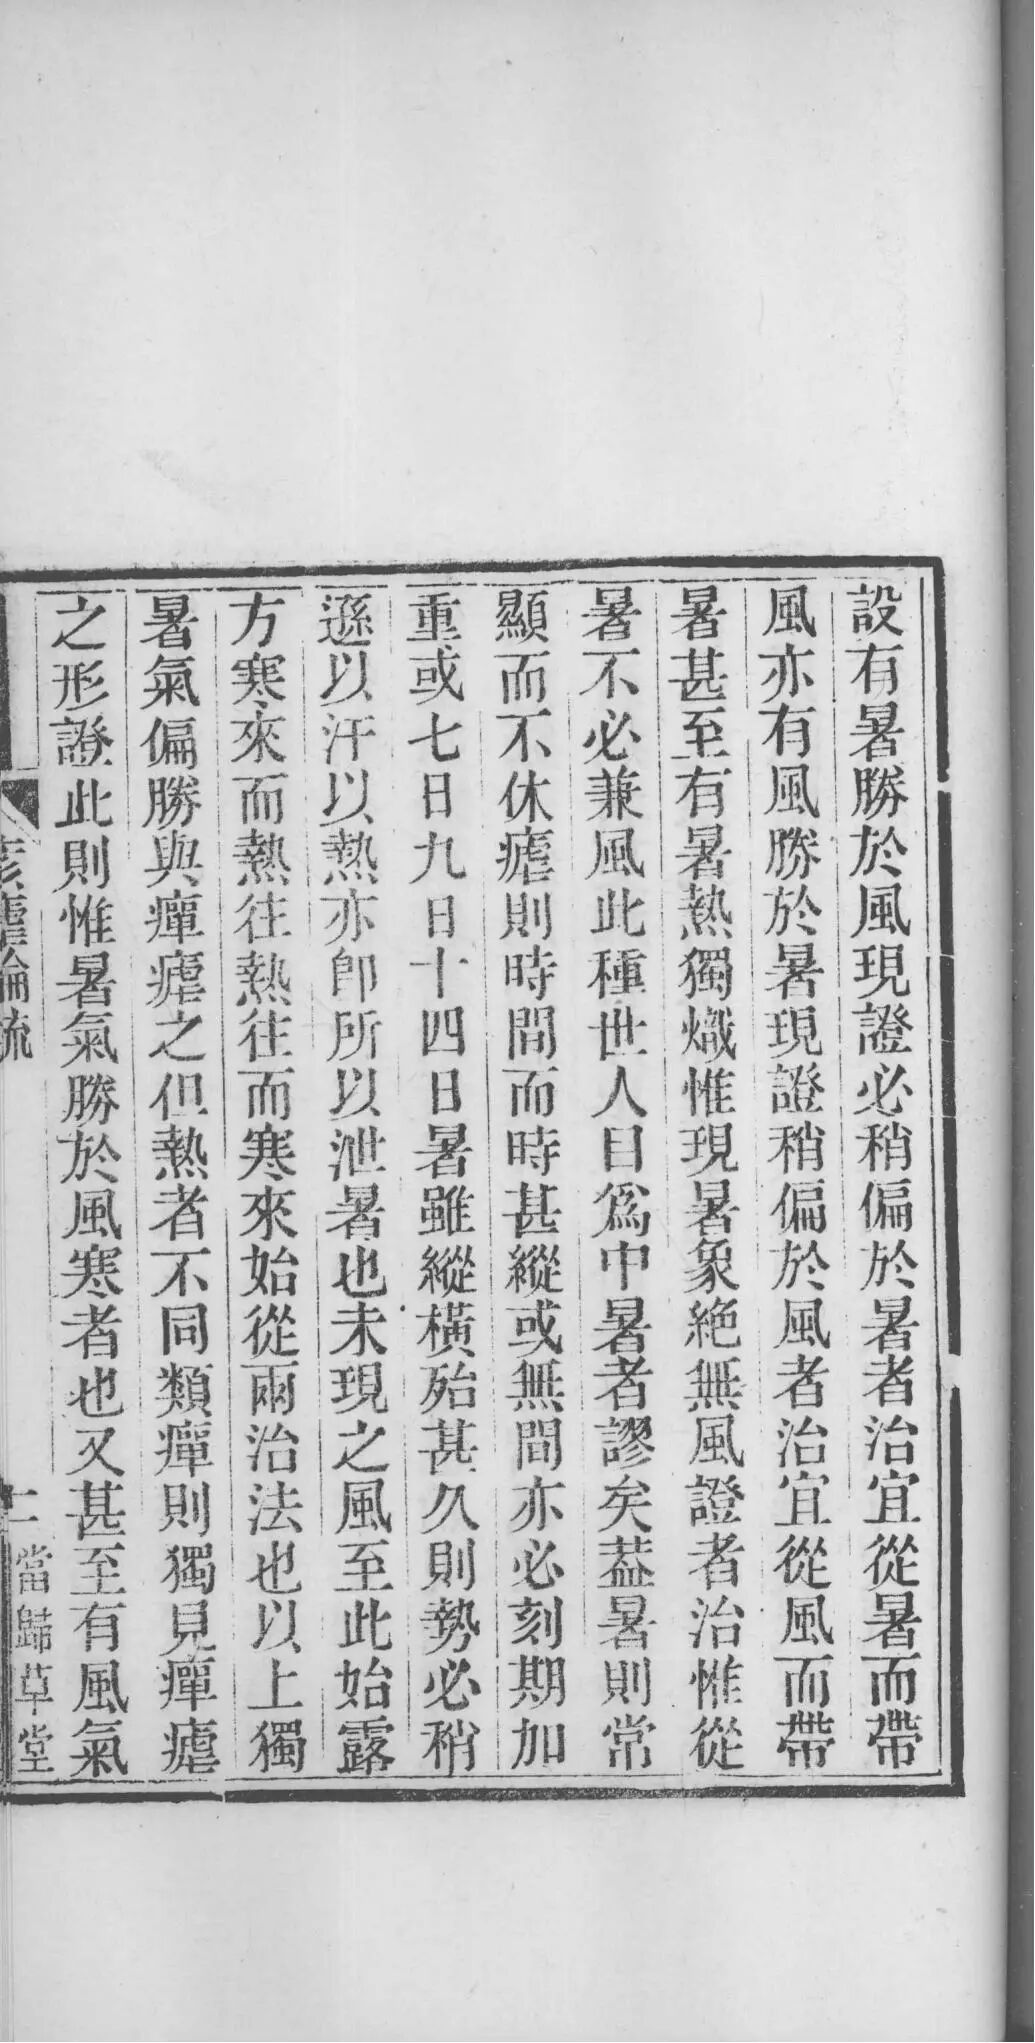 設有暑勝於風現證必稍偏於暑者治宜從暑而帶
風亦有風勝於暑現證稍偏於風者治宜從風而帶
暑甚至有暑熱獨熾惟現暑象絶無風證者治惟從
暑不必兼風此種世人目爲中暑者謬矣葢暑則常
顯而不休瘧則時間而時甚縱或無間亦必刻期加
重或七日九日十四日暑雖縱橫殆甚久則勢必稍
遜以汗以熱亦卽所以泄暑也未現之風至此始露
方寒來而熱往熱往而寒來始從兩治法也以上獨
暑氣偏勝與癉瘧之但熱者不同類癉則獨見癉瘧
之形證此則惟暑氣勝於風寒者也又甚至有風氣
瘧論疏
二
當歸草堂